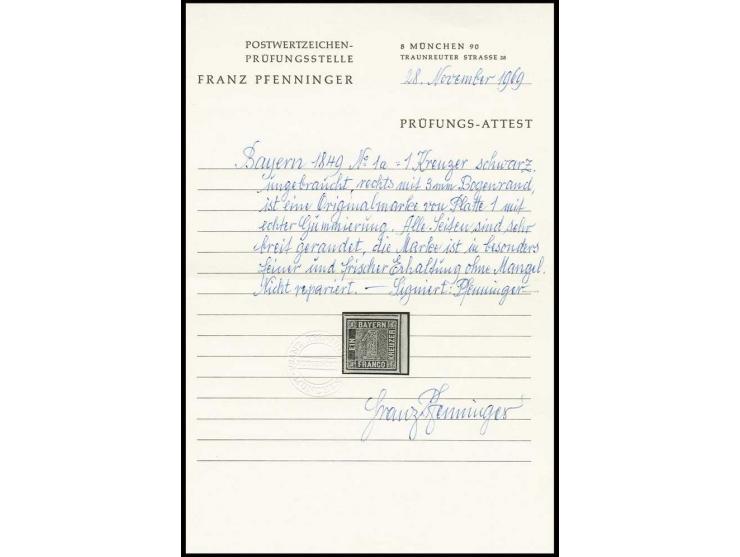 POSTWERTZEICHEN-
PRÜFUNGSSTELLE
FRANZ PFENNINGER
8 MÜNCHEN 90
TRAUNREUTER STRASSE 28
28. November 1969
PRÜFUNGS-ATTEST
Bayern 1849 No 1a = 1 Kreuzer schwarz,
ungebraucht, rechts mit 3mm Bogenrand,
ist eine Originalmarke von Platte 1 mit
echter Gummierung. Alle Seiten sind sehr
breit gerandet, die Marke ist in besonders
feiner und frischer Erhaltung ohne Mangel.
Nicht repariert. — Signiert: Pfenninger
BAYERN
EIN
1
KREUZER
FRANCO
Franz Pfenninger